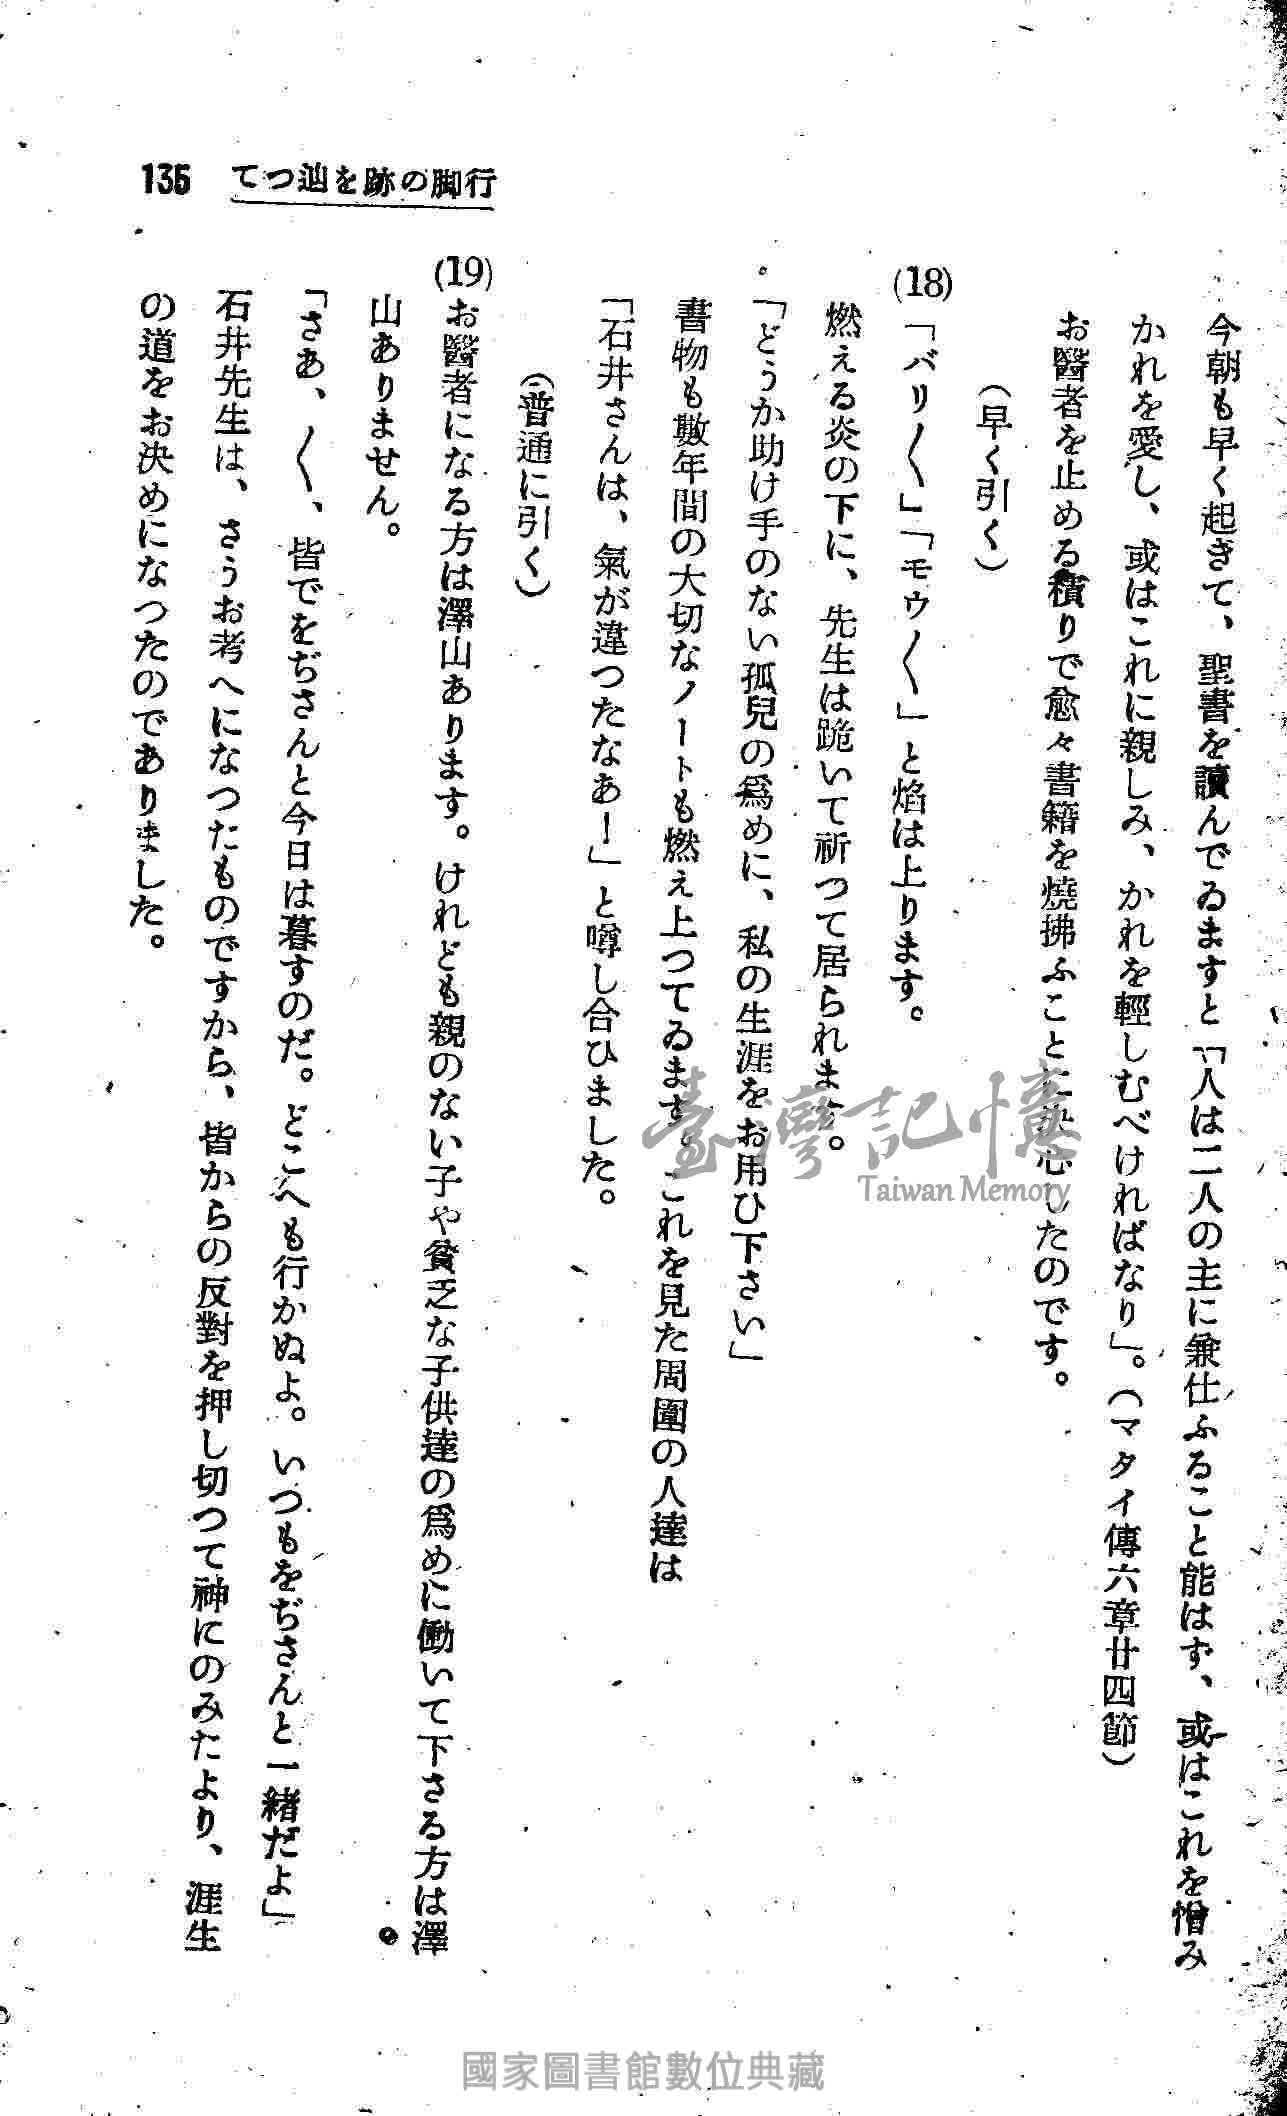 135 てつ辿を跡の脚行
今朝も早く起きて、聖書を讀んでゐますと「人は二人の主に兼仕ふること能はず、或はこれを憎み
かれを愛し、或はこれに親しみ、かれを輕しむべければなり」。(マタイ傳六章廿四節)
お醫者を止める積りで愈々書籍を燒拂ふことに決心したのです。
(早く引く)
(18)「バリ〱」「モウ〱」と焰は上ります。
燃える炎の下に、先生は跪いて祈つて居られます。
「どうか助け手のない孤兒の爲めに、私の生涯をお用ひ下さい」
書物も數年間の大切なノートも燃え上つてゐます。これを見た周圍の人達は
「石井さんは、氣が違つたなあ!」と噂し合ひました。
(普通に引く)
(19)お醫者になる方は澤山あります。けれども親のない子や貧乏な子供達の爲めに働いて下さる方は澤
山ありません。
「さあ、〱、皆でをぢさんと今日は暮すのだ。どこへも行かぬよ。いつもをぢさんと一緒だよ」
石井先生は、さうお考へになつたものですから、皆からの反對を押し切つて神にのみたより、涯生
の道をお決めになつたのでありました。
臺灣記憶
Taiwan Memory
國家圖書館數位典藏